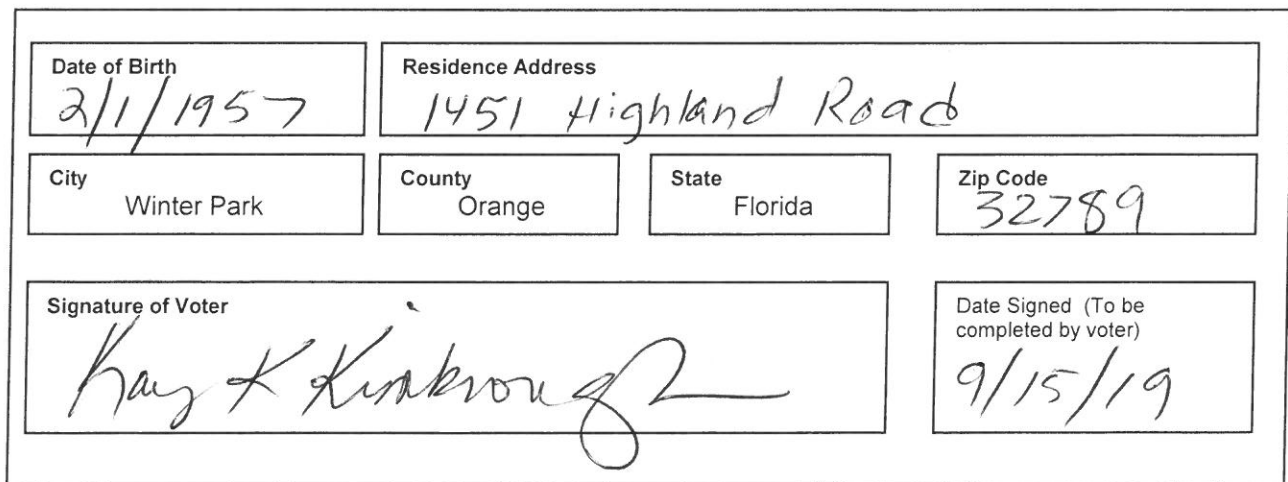 Date of Birth
2/1/1957
Residence Address
1451 Highland Road
City
Winter Park
County
Orange
State
Florida
Zip Code
32789
Signature of Voter
Kay K Kimbrough
Date Signed (To be
completed by voter)
9/15/19